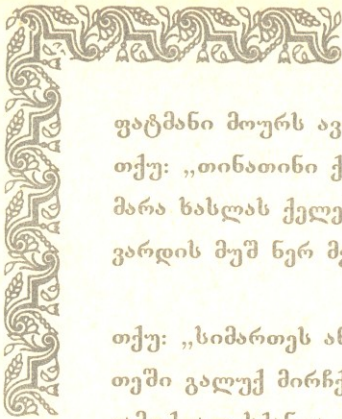 ფატმანი მოურს ავ
თქუ: „თინათინი ქ
მარა ხასლას ქელე
ვარდის მუშ ნერ მ
თქუ: „სიმართეს ან
თეში გალუქ მირჩქ